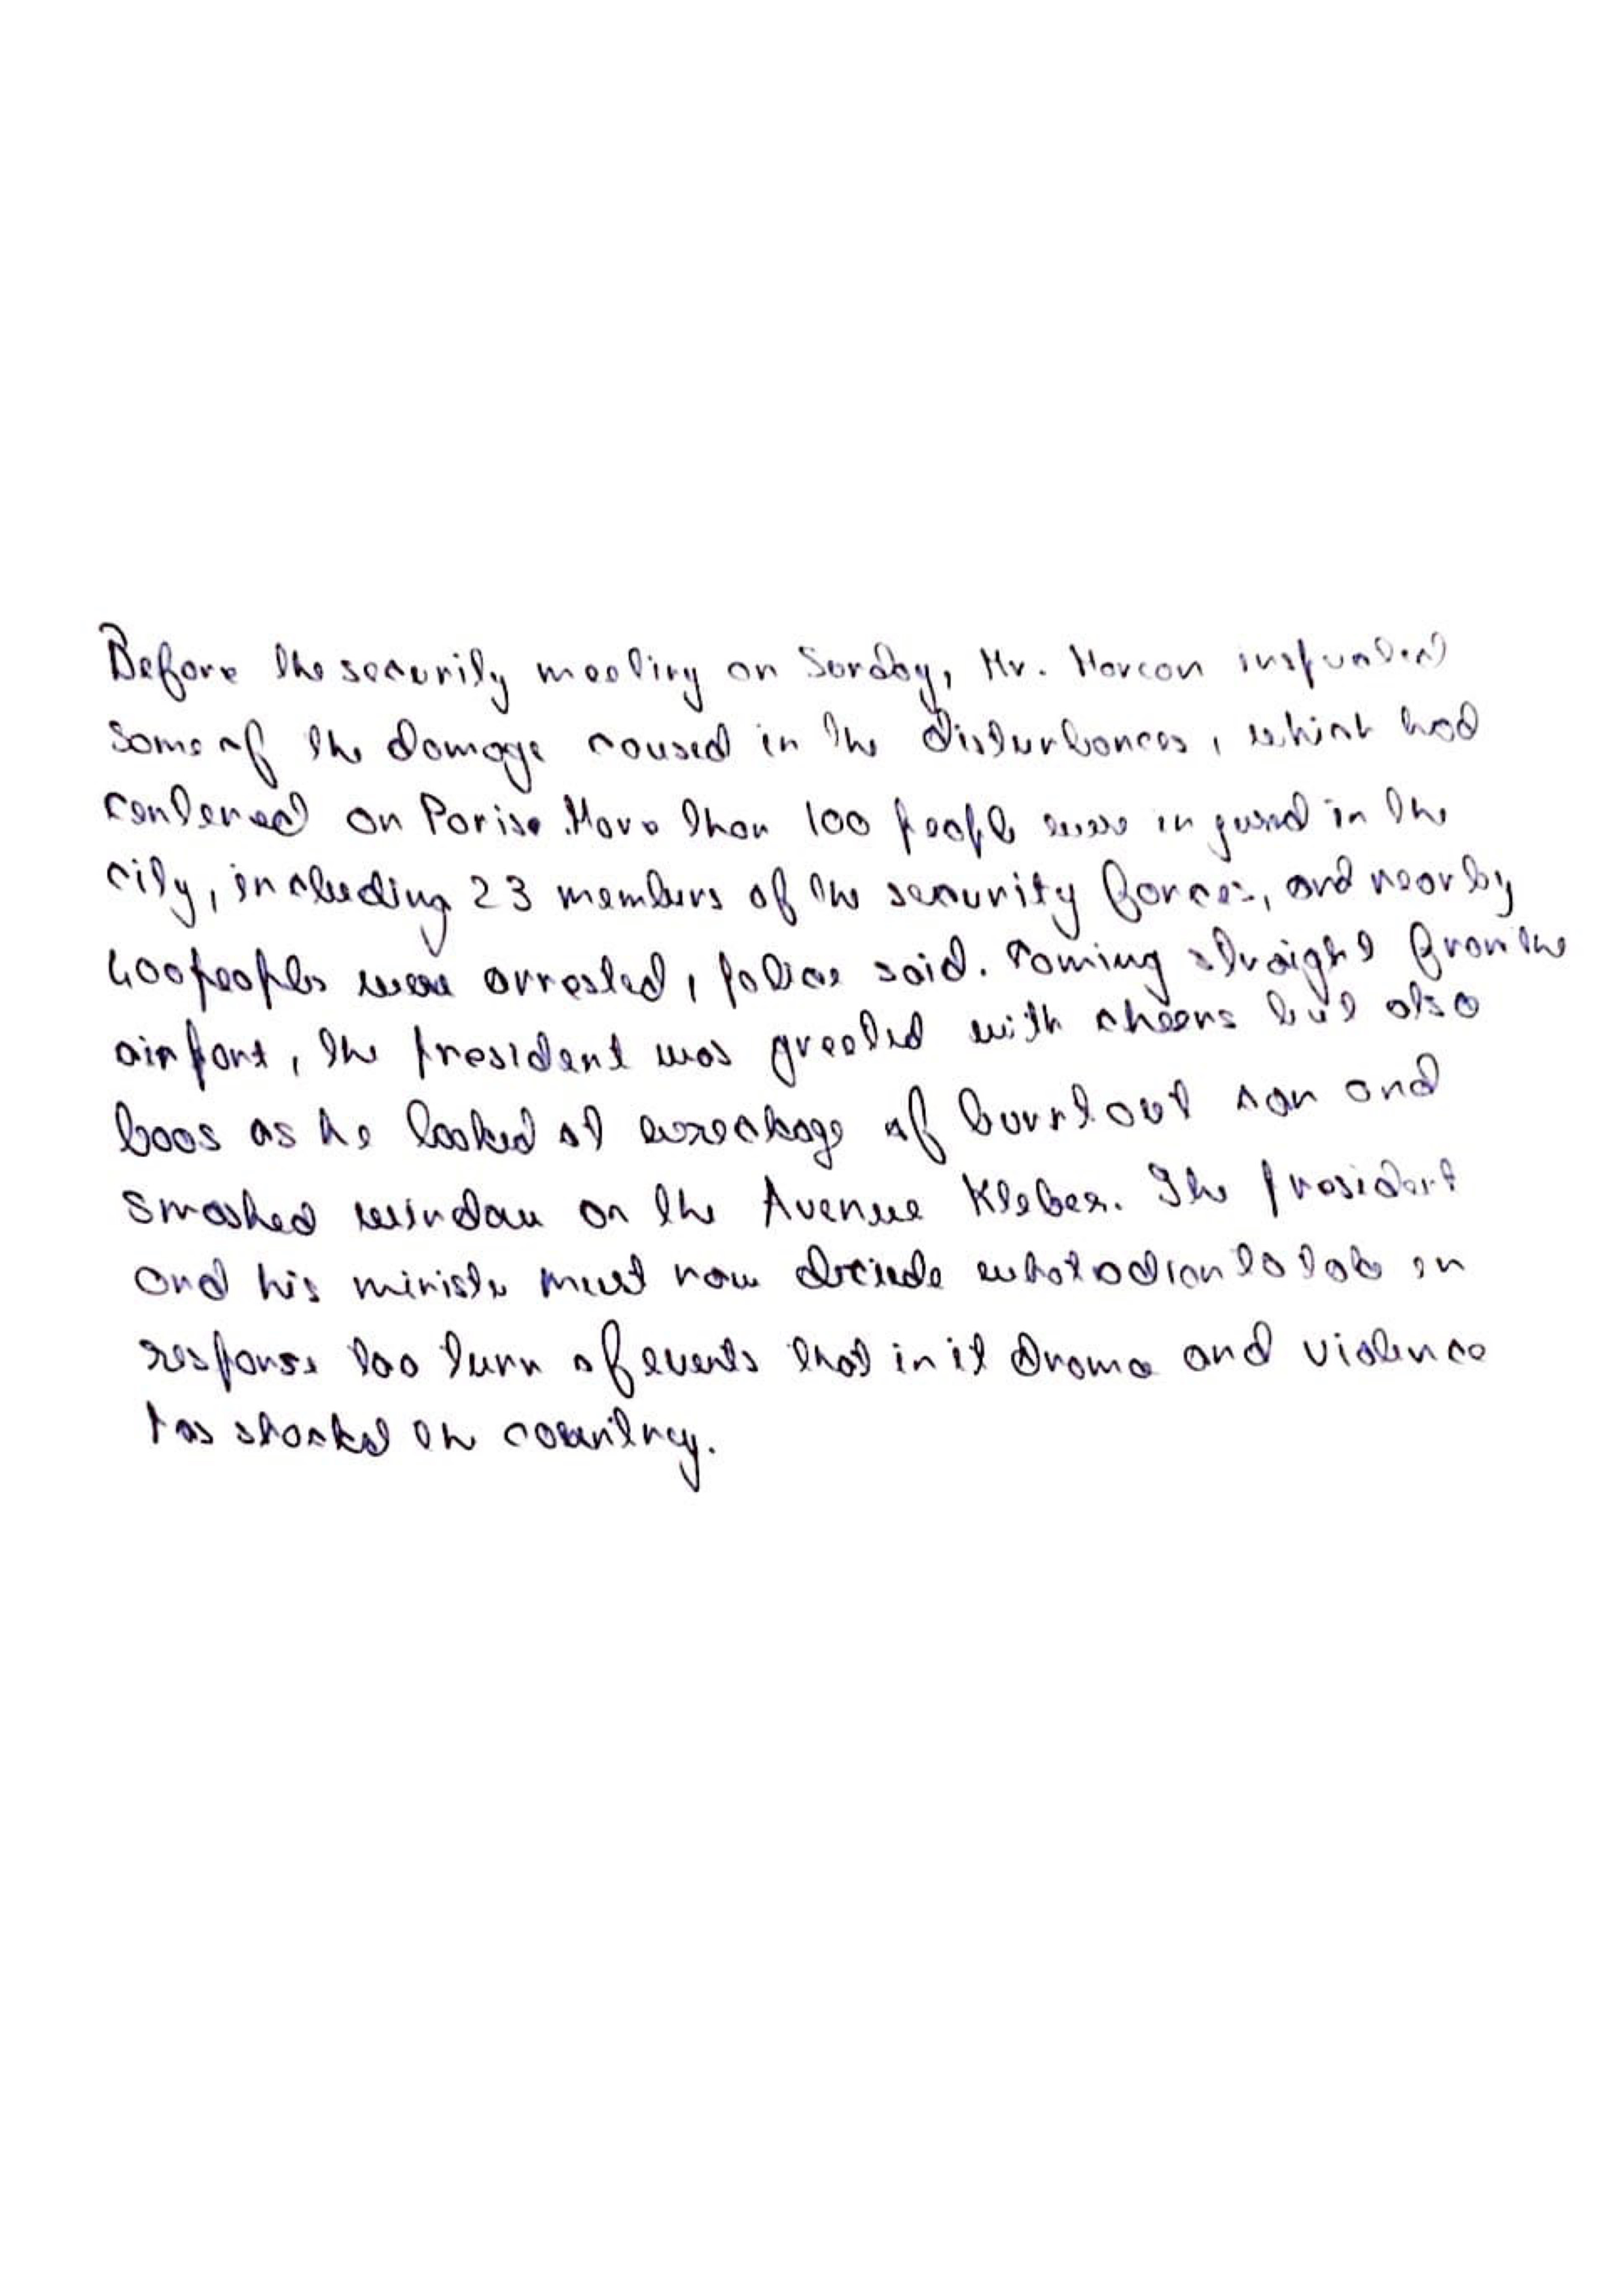 Before the security meeting on Sunday, Mr. Marcon inspected
some of the damage caused in the disturbances, which had
centered on Paris. More than 100 people were injured in the
city, including 23 members of the security forces, and nearby
400 peoples were arrested, police said. Coming straight from the
airport, the president was greeted with cheers but also
boos as he looked at wreckage of burnt out car and
smashed window on the Avenue Kleber. The president
and his ministe must now decide what action to take in
response too turn of events that in it drama and violence
has shocked the country.